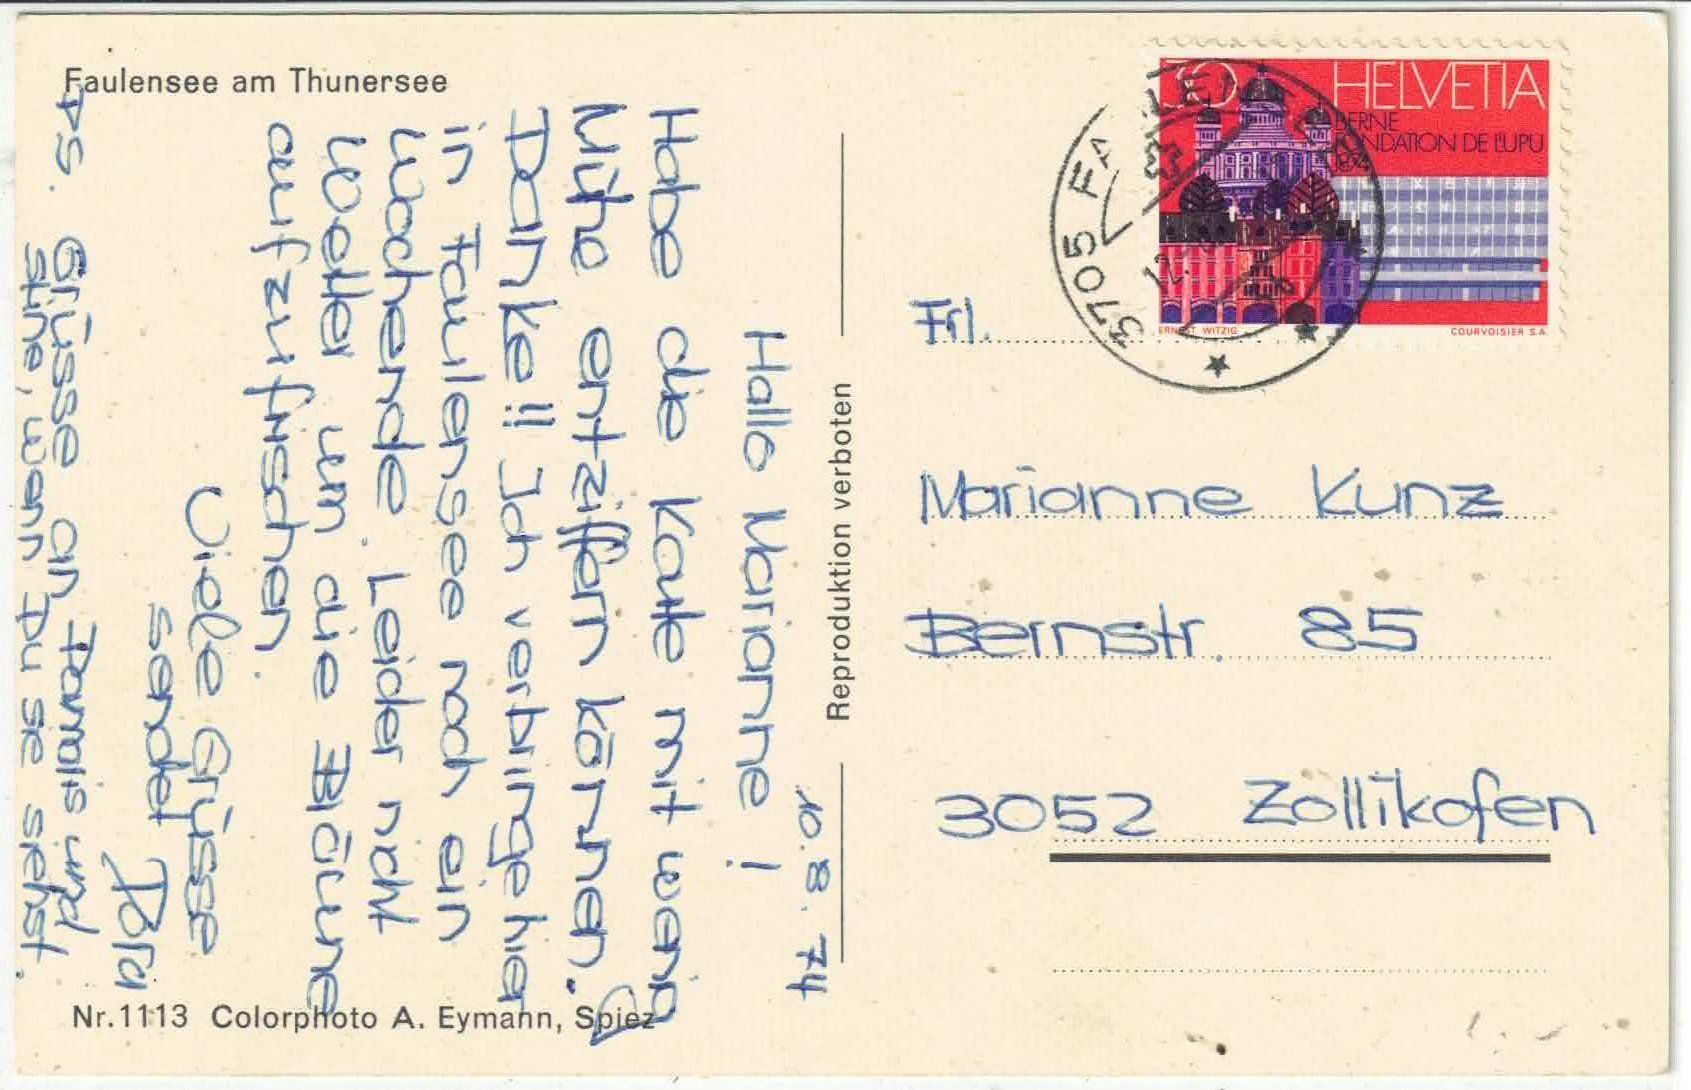 Faulensee am Thunersee
10.8.74
Hallo Marianne!
Habe die Karte mit wenig
Mühe entziffern können.
Danke!! Ich verbringe hier
in Faulensee noch ein
Wochenende. Leider nicht
Wetter um die Bräune
aufzufrischen.
Viele Grüsse
sendet
PS. Grüsse an Damaris und
Stine, wann Du sie siehst.
Nr.1113 Colorphoto A. Eymann, Spiez
Reproduktion verboten
30 HELVETIA
BERNE
FONDATION DE L'UPU
1874
ERNST WITZIG
COURVOISIER S.A.
3705 FAULENSEE
Frl.
Marianne Kunz
Bernstr. 85
3052 Zollikofen